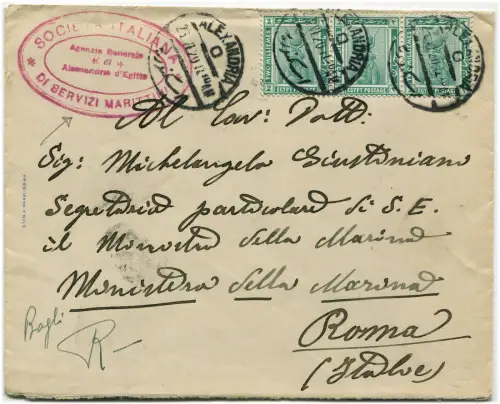 SOCIETÀ ITALIANA
Agenzia Generale
di
Alessandria d'Egitto
DI SERVIZI MARITTIMI
ALEXANDRIA
ALEXANDRIA
TWO MILLIEMES
EGYPT POSTAGE
EGYPT POSTAGE
EGYPT POSTAGE
Al Cav: Dott.
Sig: Michelangelo Giustiniano
Segretario particolare di S. E.
il Ministro della Marina
Ministero della Marina
Roma
(Italie)
Bagli
R-